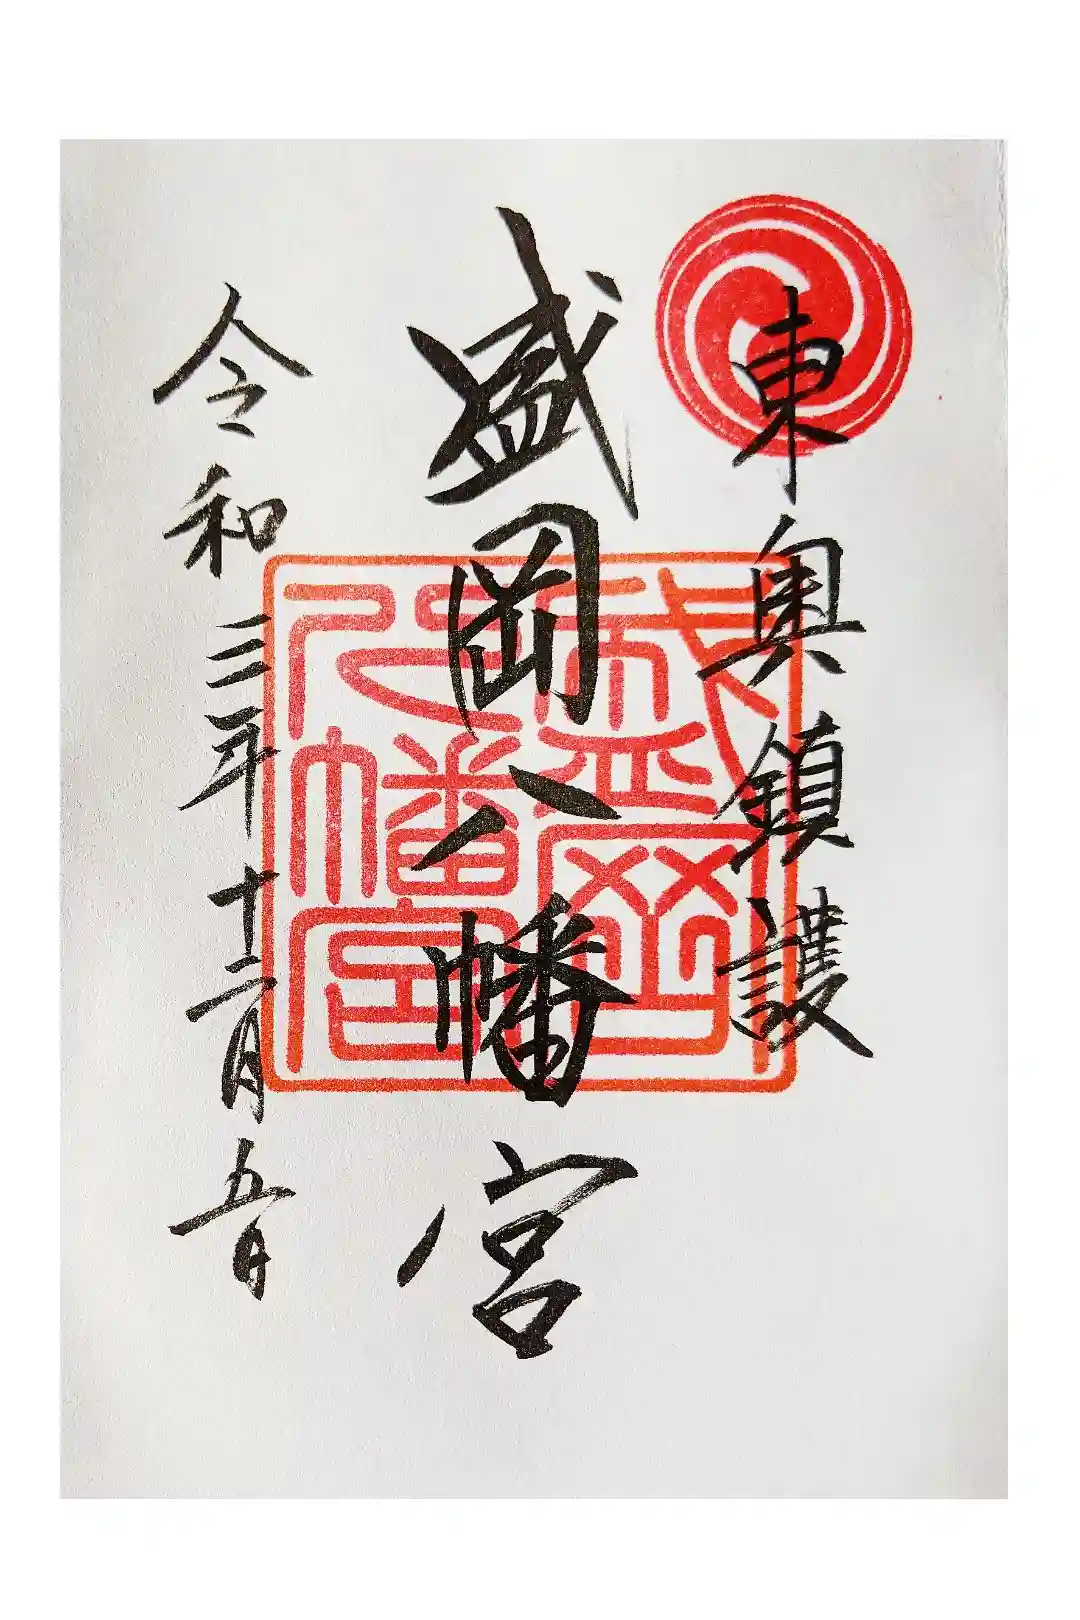 東奥鎮護
盛岡八幡宮
盛岡八幡宮
令和三年十二月五日